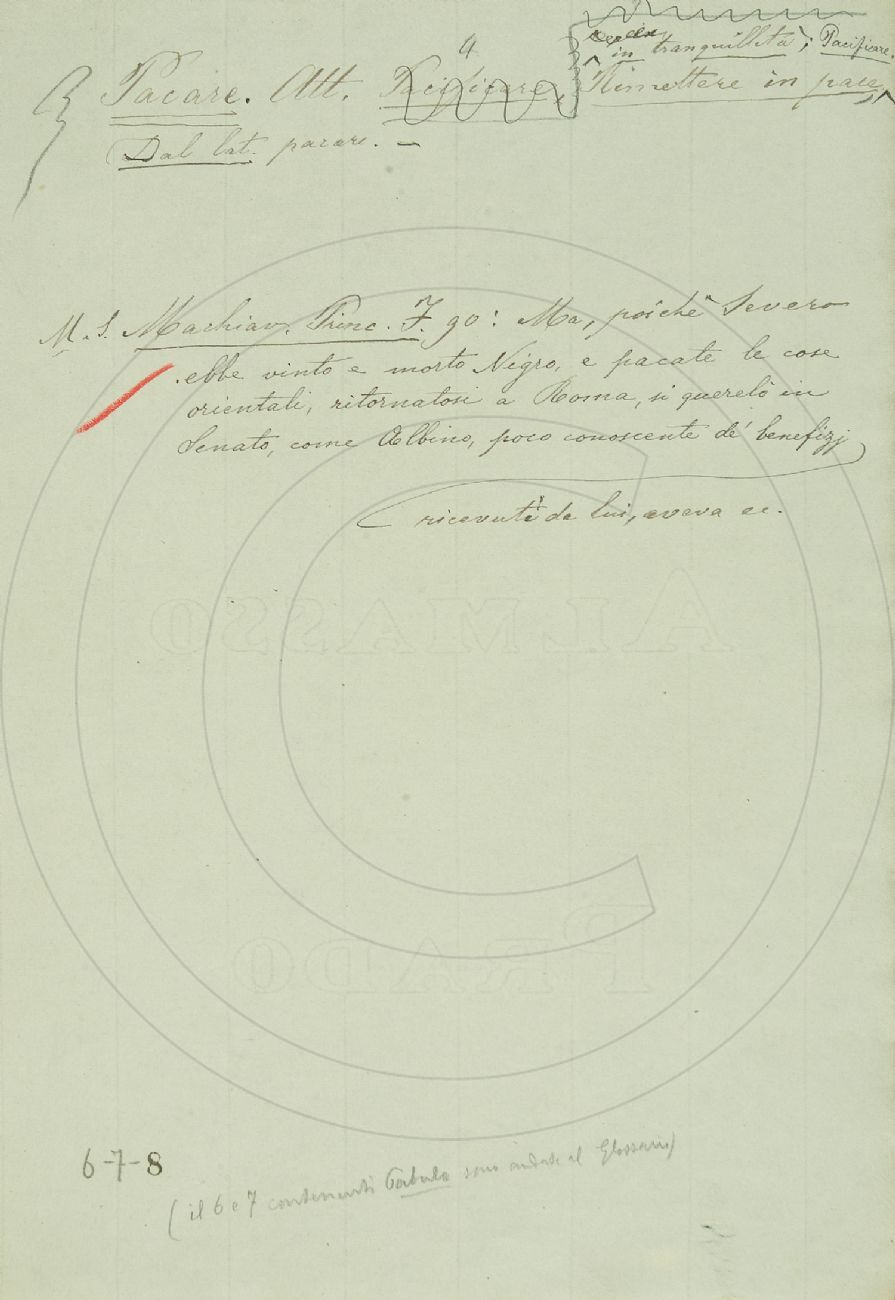 4
in tranquillità; Pacificare.
Pacare. Att. Pacificare, Rimettere in pace,
Dal lat. pacare. —
M. S. Machiav. Princ. F. 90: Ma, poichè Severo
ebbe vinto e morto Nigro, e pacate le cose
orientali, ritornatosi a Roma, si querelò in
Senato, come Albino, poco conoscente de' benefizj
ricevuti da lui, aveva ec.
ALMASSO
PRADO
6-7-8
(il 6 e 7 contenenti Pabulo sono andate al Glossario)